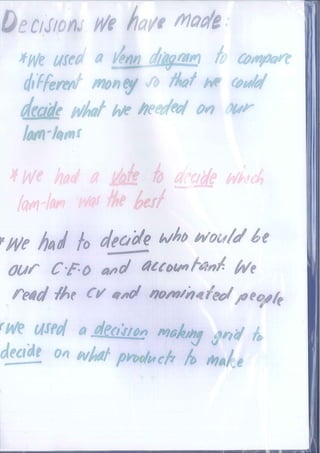 Decisions we have made:
*We used a Venn diagram to compare
different money so that we could
decide what we needed on our
lam-lams
*We had a vote to decide which
lam-lam was the best
*We had to decide who would be
our C.E.O and accountant. We
read the CV and nominated people
*We used a decision making grid to
decide on what products to make